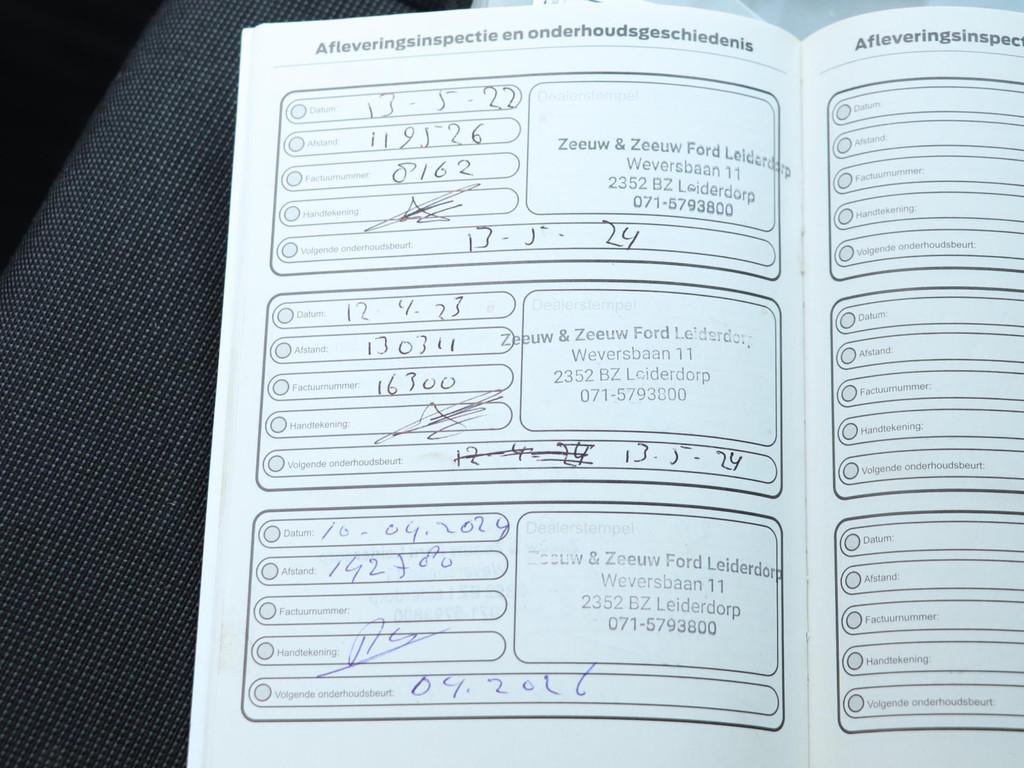 Afleveringsinspectie en onderhoudsgeschiedenis
Datum: 13-5-22
Afstand: 119526
Factuurnummer: 8162
Handtekening:
Volgende onderhoudsbeurt: 13-5-24
Dealerstempel
Zeeuw & Zeeuw Ford Leiderdorp
Weversbaan 11
2352 BZ Leiderdorp
071-5793800
Datum: 12-4-23
Afstand: 130311
Factuurnummer: 16300
Handtekening:
Volgende onderhoudsbeurt: 12-4-24 13-5-24
Dealerstempel
Zeeuw & Zeeuw Ford Leiderdorp
Weversbaan 11
2352 BZ Leiderdorp
071-5793800
Datum: 10-04.2024
Afstand: 142780
Factuurnummer:
Handtekening:
Volgende onderhoudsbeurt: 04.2026
Dealerstempel
Zeeuw & Zeeuw Ford Leiderdorp
Weversbaan 11
2352 BZ Leiderdorp
071-5793800
Afleveringsinspect
Datum:
Afstand:
Factuurnummer:
Handtekening:
Volgende onderhoudsbeurt:
Datum:
Afstand:
Factuurnummer:
Handtekening:
Volgende onderhoudsbeurt:
Datum:
Afstand:
Factuurnummer:
Handtekening:
Volgende onderhoudsbeurt: